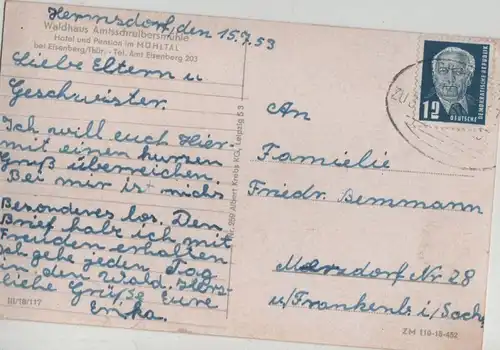 Hermsdorf, den 15.7.53
Waldhaus Amtsschreibersmühle
Hotel und Pension im MÜHLTAL
bei Eisenberg/Thür. - Tel. Amt Eisenberg 203
Liebe Eltern u
Geschwister.
Ich will euch hier
mit einen kurzen
Gruß überreichen.
Bei mir ist nichs
Besonderes los. Den
Brief hab ich mit
Freuden erhalten
Ich gehe jeden Tag
in den Wald. Herz-
liche Grüße Eure
III/18/117
Nr. 259 Albert Krebs KG., Leipzig S 3
DEUTSCHE DEMOKRATISCHE REPUBLIK
12 DEUTSCHE
An
Familie
Friedr. Bemmann
Marsdorf Nr 28
u/Frankenb. i/Sachs.